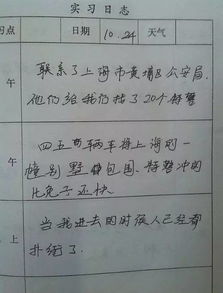 实习日志
习点 日期 10.24 天气
午
联系了上海市黄埔区公安局.
他们给我们拨了20个特警
午
四五部辆车将上海的一
幢别墅给包围、特警冲的
比兔子还快.
上
当我进去的时候人已经都
扑街了.